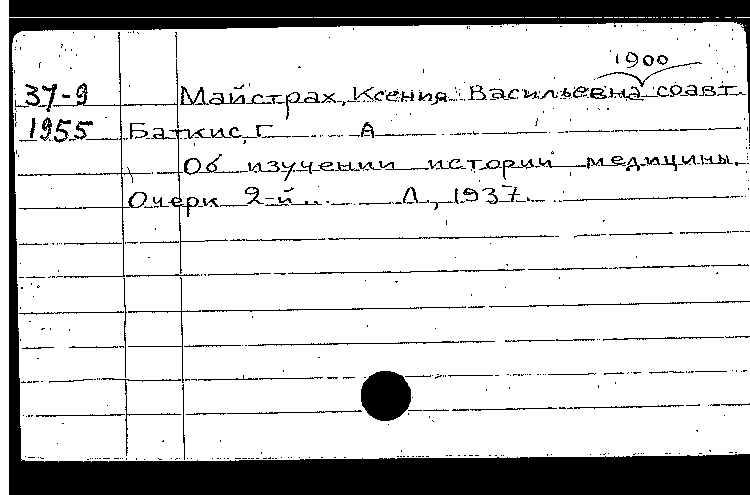 1900
37-9 Майстрах, Ксения Васильевна соавт.
1955 Баткис, Г А
Об изучении истории медицины.
Очерк 2-й... Л., 1937.